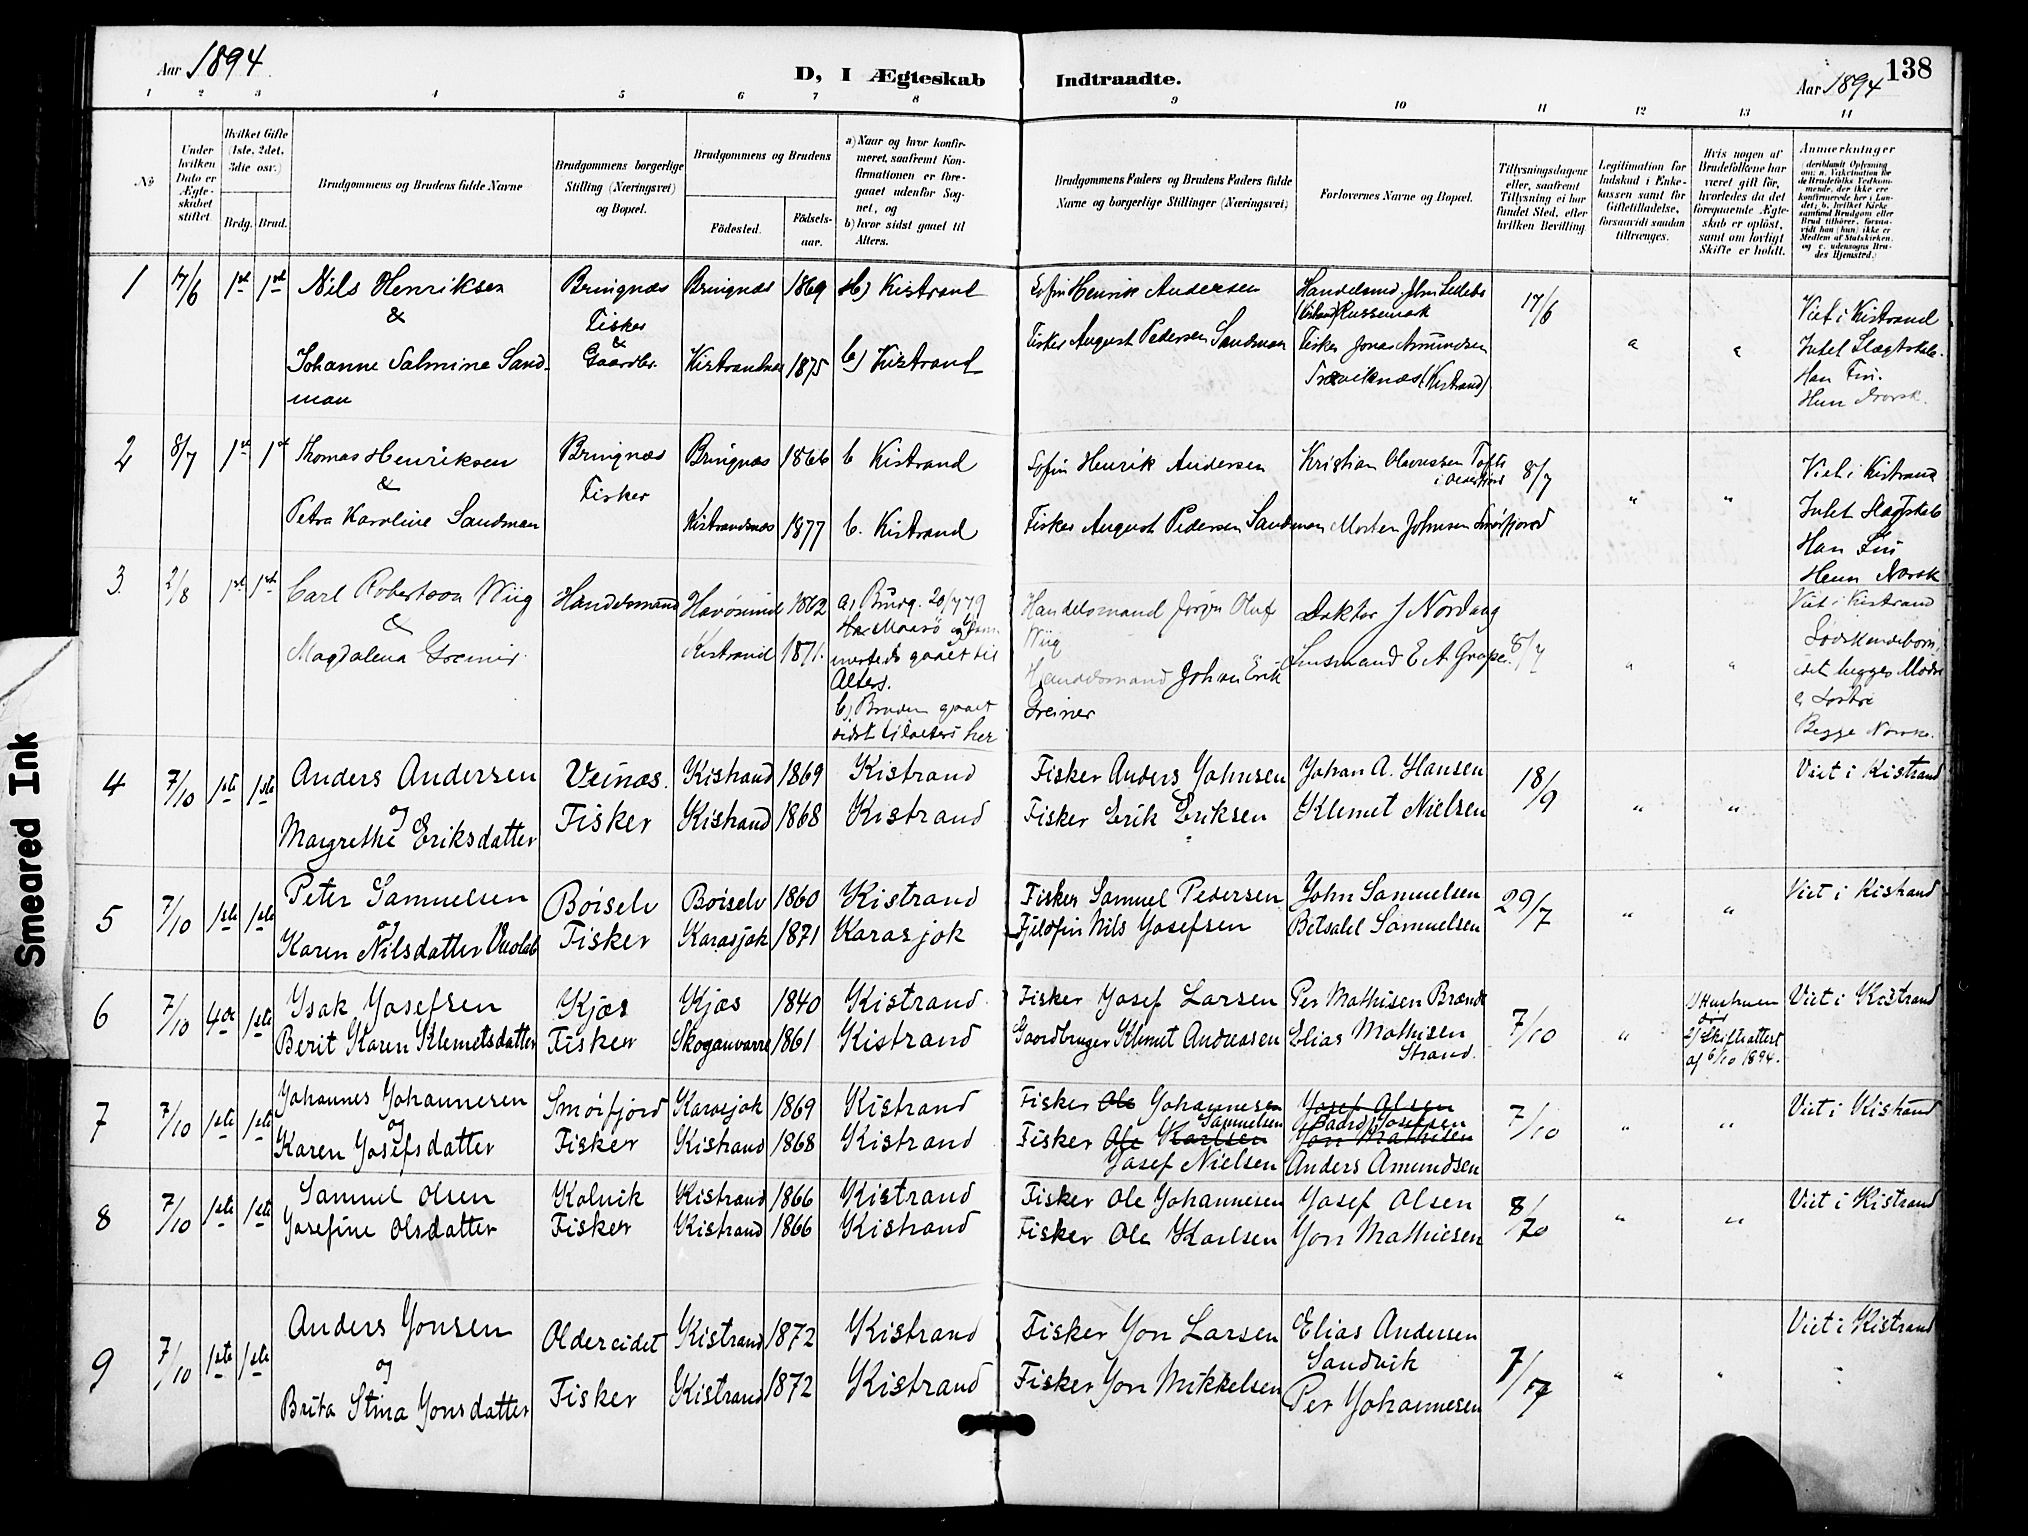 Aar 1894.
D, I Ægteskab Indtraadte.
Aar 1894
138
1 2 3 4 5 6 7 8 9 10 11 12 13 14
No
Under hvilken Dato er Ægteskabet stiftet
Hvilket Gifte (1ste, 2det, 3die osv.)
Brdg. Brud.
Brudgommens og Brudens fulde Navne
Brudgommens borgerlige Stilling (Næringsvei) og Bopæl.
Brudgommens og Brudens
Fødested.
Fødselsaar.
a) Naar og hvor konfirmeret, saafremt Konfirmationen er foregaaet udenfor Sognet, og
b) hvor sidst gaaet til Alters.
Brudgommens Faders og Brudens Faders fulde Navne og borgerlige Stillinger (Næringsvei)
Forlovernes Navne og Bopæl.
Tillysningsdagene eller, saafremt Tillysning ei har fundet Sted, efter hvilken Bevilling
Legitimation for Indskud i Enkekassen samt for Giftetilladelse, forsaavidt saadan tiltrænges.
Hvis nogen af Brudefolkene har været gift før, hvorledes da det foregaaende Ægteskab er opløst, samt om lovligt Skifte er holdt.
Anmerkninger
1 17/6 1st 1st Nils Henriksen
&
Johanne Salmine Sandman
Bringnæs Fisker & Gaardbr.
Bringnæs 1869
Kistrandnæs 1875
b) Kistrand
b) Kistrand
Søfin Henrik Andersen
Fisker August Pedersen Sandman
Fisker Jonas Amundsen
(Kistrand)
17/6
Viet i Kistrand
Intet Slægtskab.
Han Fin.
Hun Norsk.
2 8/7 1st 1st Thomas Henriksen
&
Petra Karoline Sandman
Bringnæs
Fisker
Bringnæs 1866
Kistrandnæs 1877
b Kistrand
b. Kistrand
Søfin Henrik Andersen
Fisker August Pedersen Sandman
Kristian Olaussen Tofte
Morten Johnsen Smørfjord
8/7
" "
Viet i Kistrand
Intet Slagtskab
Han Fin
Hun Norsk
3. 2/8 1st 1st Carl Robertson Wiig
&
Magdalena Greiner.
Handelsmand
Havøsund 1862
Kistrand 1871.
a) Brudg. 20/7 79
Maasø
gaaet til
Alters.
b) Bruden gaaet
sidst til alters her
Handelsmand Jørgen Oluf
Wiig
Handelsmand Johan Erik
Greiner
Doktor J Nordang
Lensmand E A Grape.
8/7
" "
Viet i Kistrand
Sødskendebørn,
Begge Norske.
4 7/10 1ste 1ste Anders Andersen
og
Margrethe Eriksdatter
Veinæs.
Fisker
Kistrand 1869
Kistrand 1868
Kistrand
Kistrand
Fisker Anders Johnsen
Fisker Erik Eriksen
Johan A. Hansen
Klemet Nielsen
18/9
" "
Viet i Kistrand
5 7/10 1ste 1ste Peter Samuelsen
og
Karen Nilsdatter Vuolab
Børselv
Fisker
Børselv 1860
Karasjok 1871
Kistrand
Karasjok
Fisker Samuel Pedersen
Fjeldfin Nils Josefsen
John Samuelsen
Betsalel Samuelsen
29/7
" "
Viet i Kistrand
6 7/10 4de 1ste Isak Josefsen
Berit Karen Klemetsdatter
Kjæs
Fisker
Kjæs 1840
Skoganvarre 1861
Kistrand
Kistrand
Fisker Josef Larsen
Gaardbruger Klemet Andreasen
Per Mathisen Brænde
Elias Mathisen
Strand.
7/10
"
1/ Hustruen
død
2/ Skifteattest
af 6/10 1894.
Viet i Kistrand
7 7/10 1ste 1ste Johannes Johannesen
og
Karen Josefsdatter
Smørfjord
Fisker
Karasjok 1869
Kistrand 1868
Kistrand
Kistrand
Fisker Ole Johannesen
Samuelsen
Fisker Ole Karlsen
Josef Nielsen
Josef Olsen
Jon Mathisen
Anders Amundsen
7/10
" "
Viet i Kistrand
8 7/10 1ste 1ste Samuel Olsen
Josefine Olsdatter
Kolvik
Fisker
Kistrand 1866
Kistrand 1866
Kistrand
Kistrand
Fisker Ole Johannesen
Fisker Ole Karlsen
Josef Olsen
Jon Mathiesen
" "
Viet i Kistrand
9 7/10 1ste 1ste Anders Jonsen
og
Brita Stina Jonsdatter
Oldereidet
Fisker
Kistrand 1872
Kistrand 1872
Kistrand
Kistrand
Fisker Jon Larsen
Fisker Jon Mikkelsen
Elias Andersen
Sandvik
Per Johannesen
" "
Viet i Kistrand
Smeared Ink